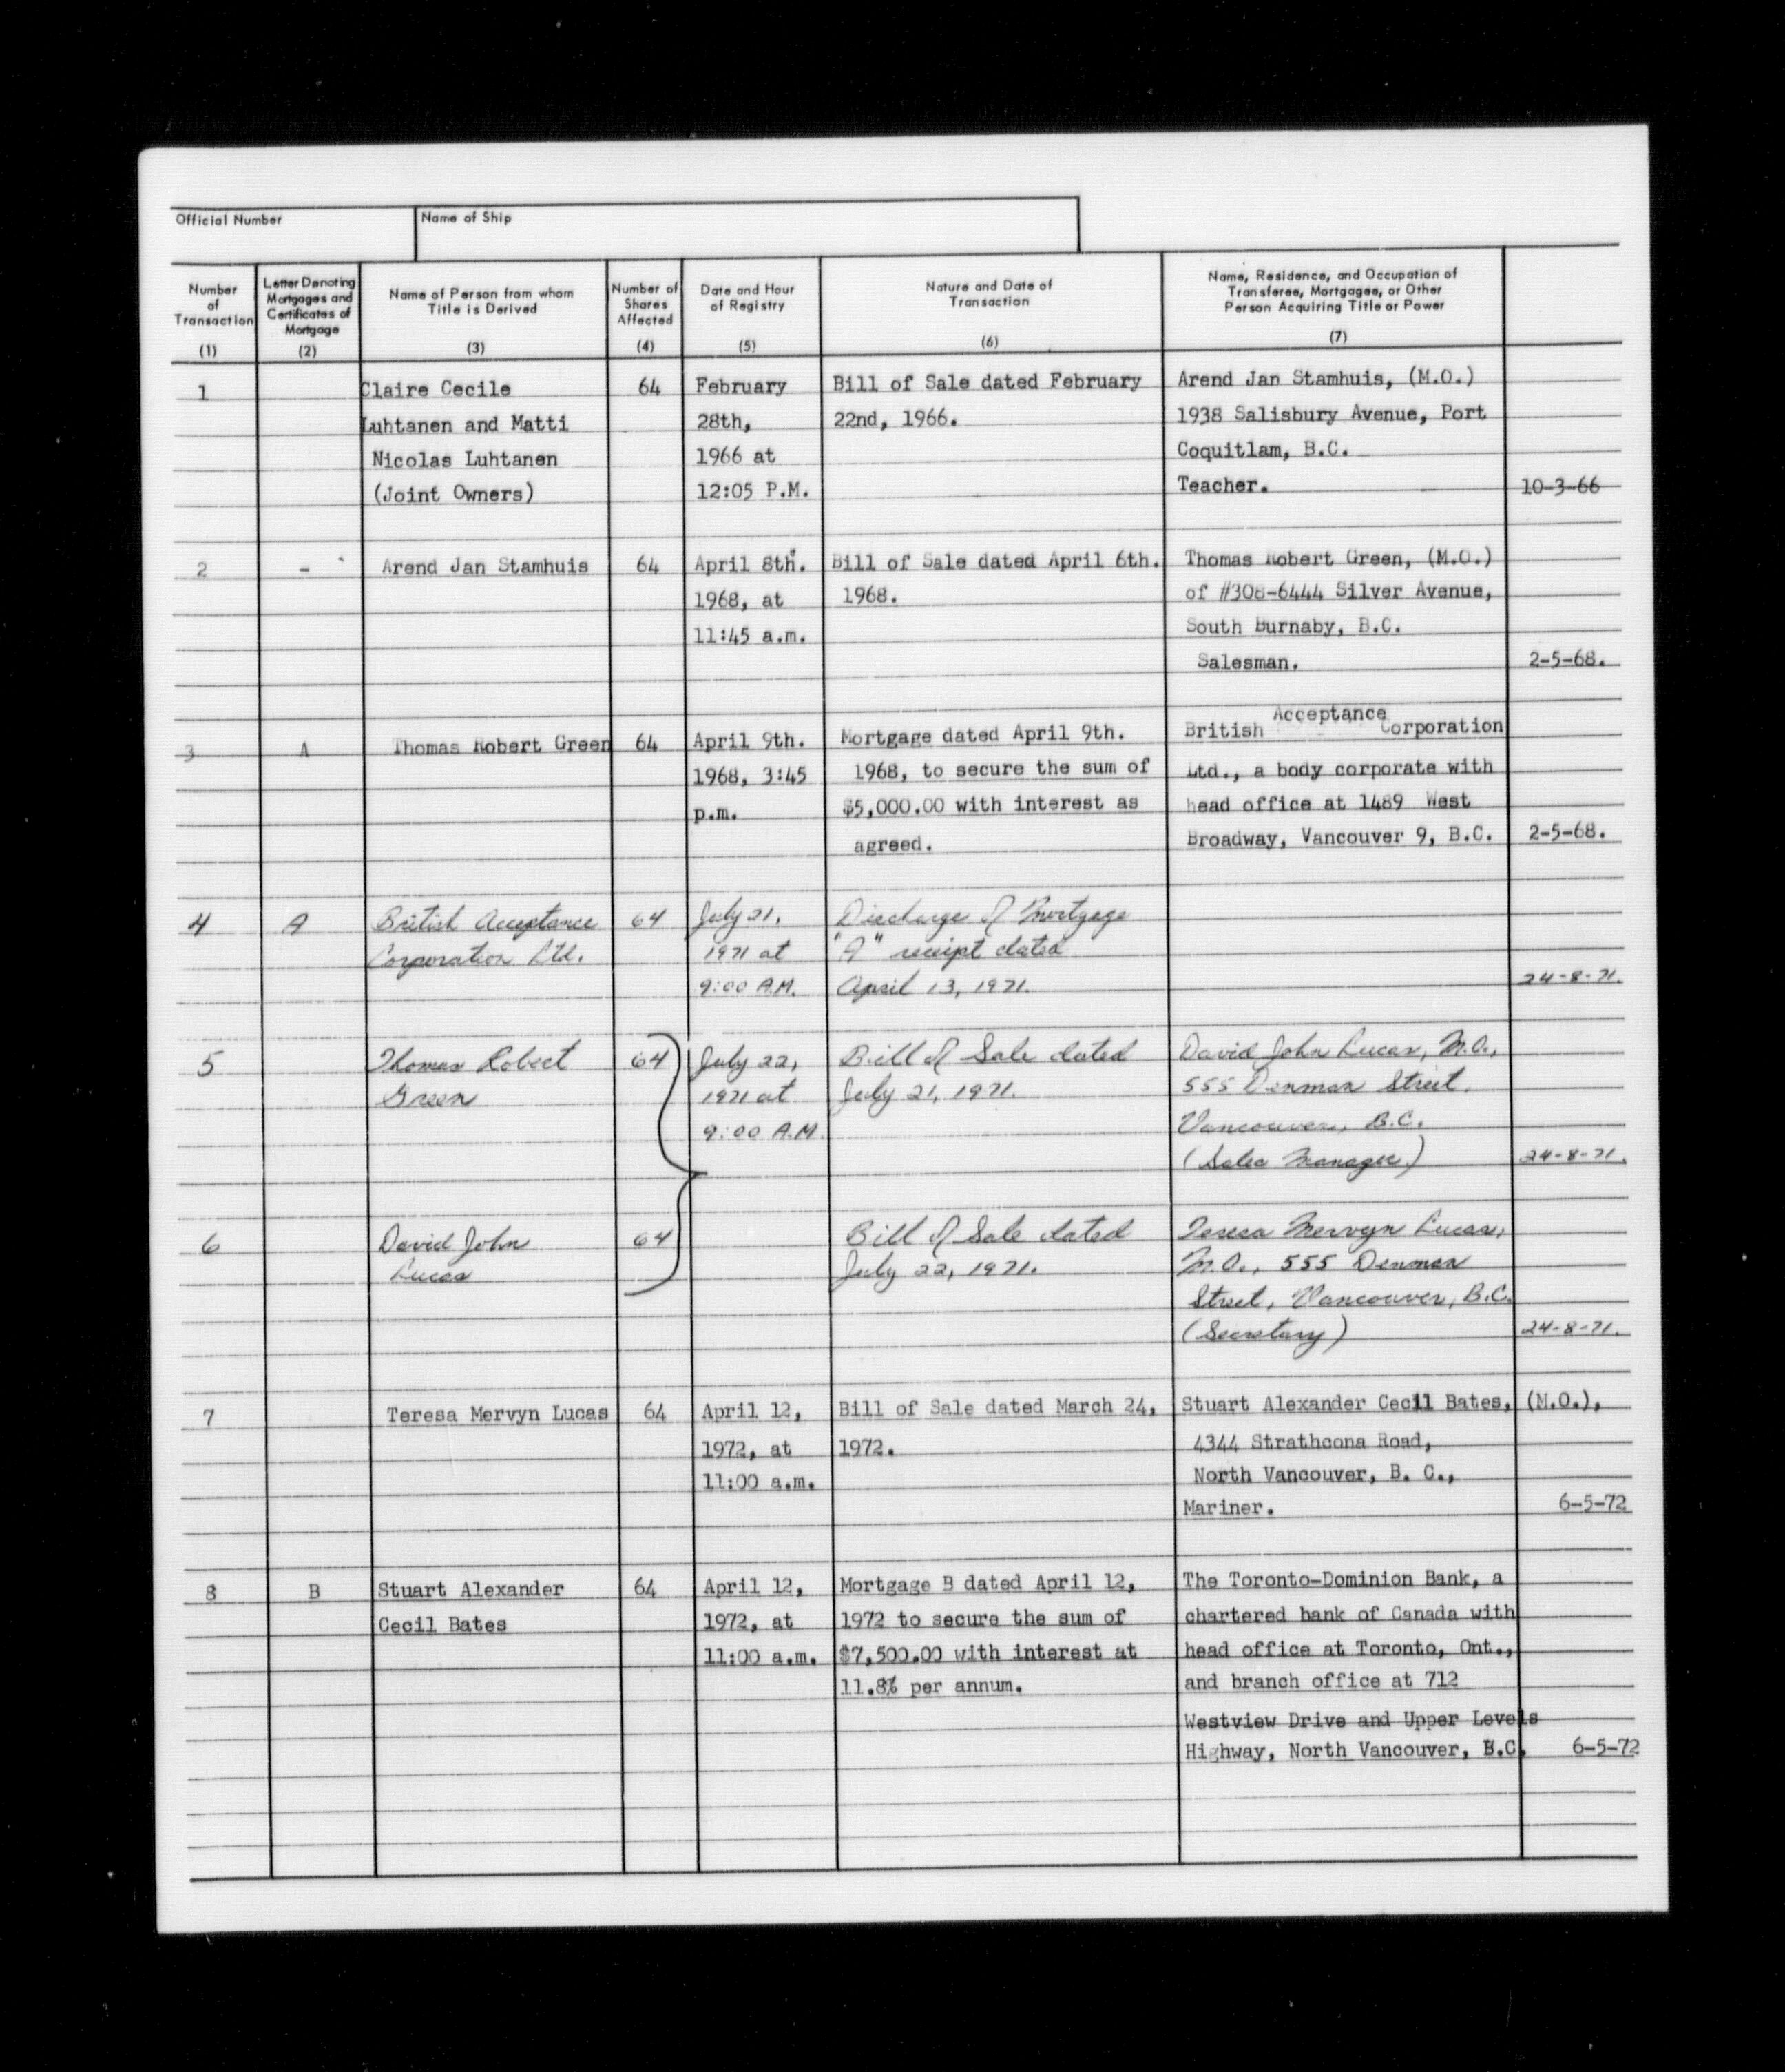 Official Number
Name of Ship
Number of Transaction (1)
Letter Denoting Mortgages and Certificates of Mortgage (2)
Name of Person from whom Title is Derived (3)
Number of Shares Affected (4)
Date and Hour of Registry (5)
Nature and Date of Transaction (6)
Name, Residence, and Occupation of Transferee, Mortgagee, or Other Person Acquiring Title or Power (7)
1 Claire Cecile 64 February Bill of Sale dated February Arend Jan Stamhuis, (M.O.)
Luhtanen and Matti 28th, 22nd, 1966. 1938 Salisbury Avenue, Port
Nicolas Luhtanen 1966 at Coquitlam, B.C.
(Joint Owners) 12:05 P.M. Teacher. 10-3-66
2 - Arend Jan Stamhuis 64 April 8th. Bill of Sale dated April 6th. Thomas Robert Green, (M.O.)
1968, at 1968. of #308-6444 Silver Avenue,
11:45 a.m. South Burnaby, B.C.
Salesman. 2-5-68.
3 A Thomas Robert Green 64 April 9th. Mortgage dated April 9th. British Acceptance Corporation
1968, 3:45 1968, to secure the sum of Ltd., a body corporate with
p.m. $5,000.00 with interest as head office at 1489 West
agreed. Broadway, Vancouver 9, B.C. 2-5-68.
4 A British Acceptance 64 July 21, Discharge of Mortgage
Corporation Ltd. 1971 at "A" receipt dated
9:00 A.M. April 13, 1971. 24-8-71.
5 Thomas Robert 64 July 22, Bill of Sale dated David John Lucas, M.O.,
Green 1971 at July 21, 1971. 555 Denman Street,
9:00 A.M. Vancouver, B.C.
(Sales Manager) 24-8-71.
6 David John 64 Bill of Sale dated Teresa Mervyn Lucas,
Lucas July 22, 1971. M.O., 555 Denman
Street, Vancouver, B.C.
(Secretary) 24-8-71.
7 Teresa Mervyn Lucas 64 April 12, Bill of Sale dated March 24, Stuart Alexander Cecil Bates, (M.O.),
1972, at 1972. 4344 Strathcona Road,
11:00 a.m. North Vancouver, B. C.,
Mariner. 6-5-72
8 B Stuart Alexander 64 April 12, Mortgage B dated April 12, The Toronto-Dominion Bank, a
Cecil Bates 1972, at 1972 to secure the sum of chartered bank of Canada with
11:00 a.m. $7,500.00 with interest at head office at Toronto, Ont.,
11.8% per annum. and branch office at 712
Westview Drive and Upper Levels
Highway, North Vancouver, B.C. 6-5-72